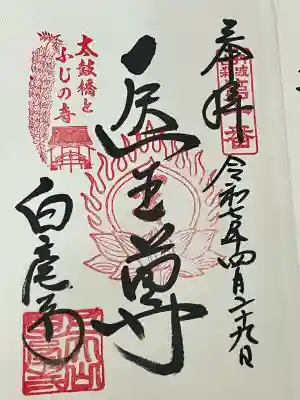 奉拝
令和七年四月二十九日
医王尊
太鼓橋と
ふじの寺
白毫寺